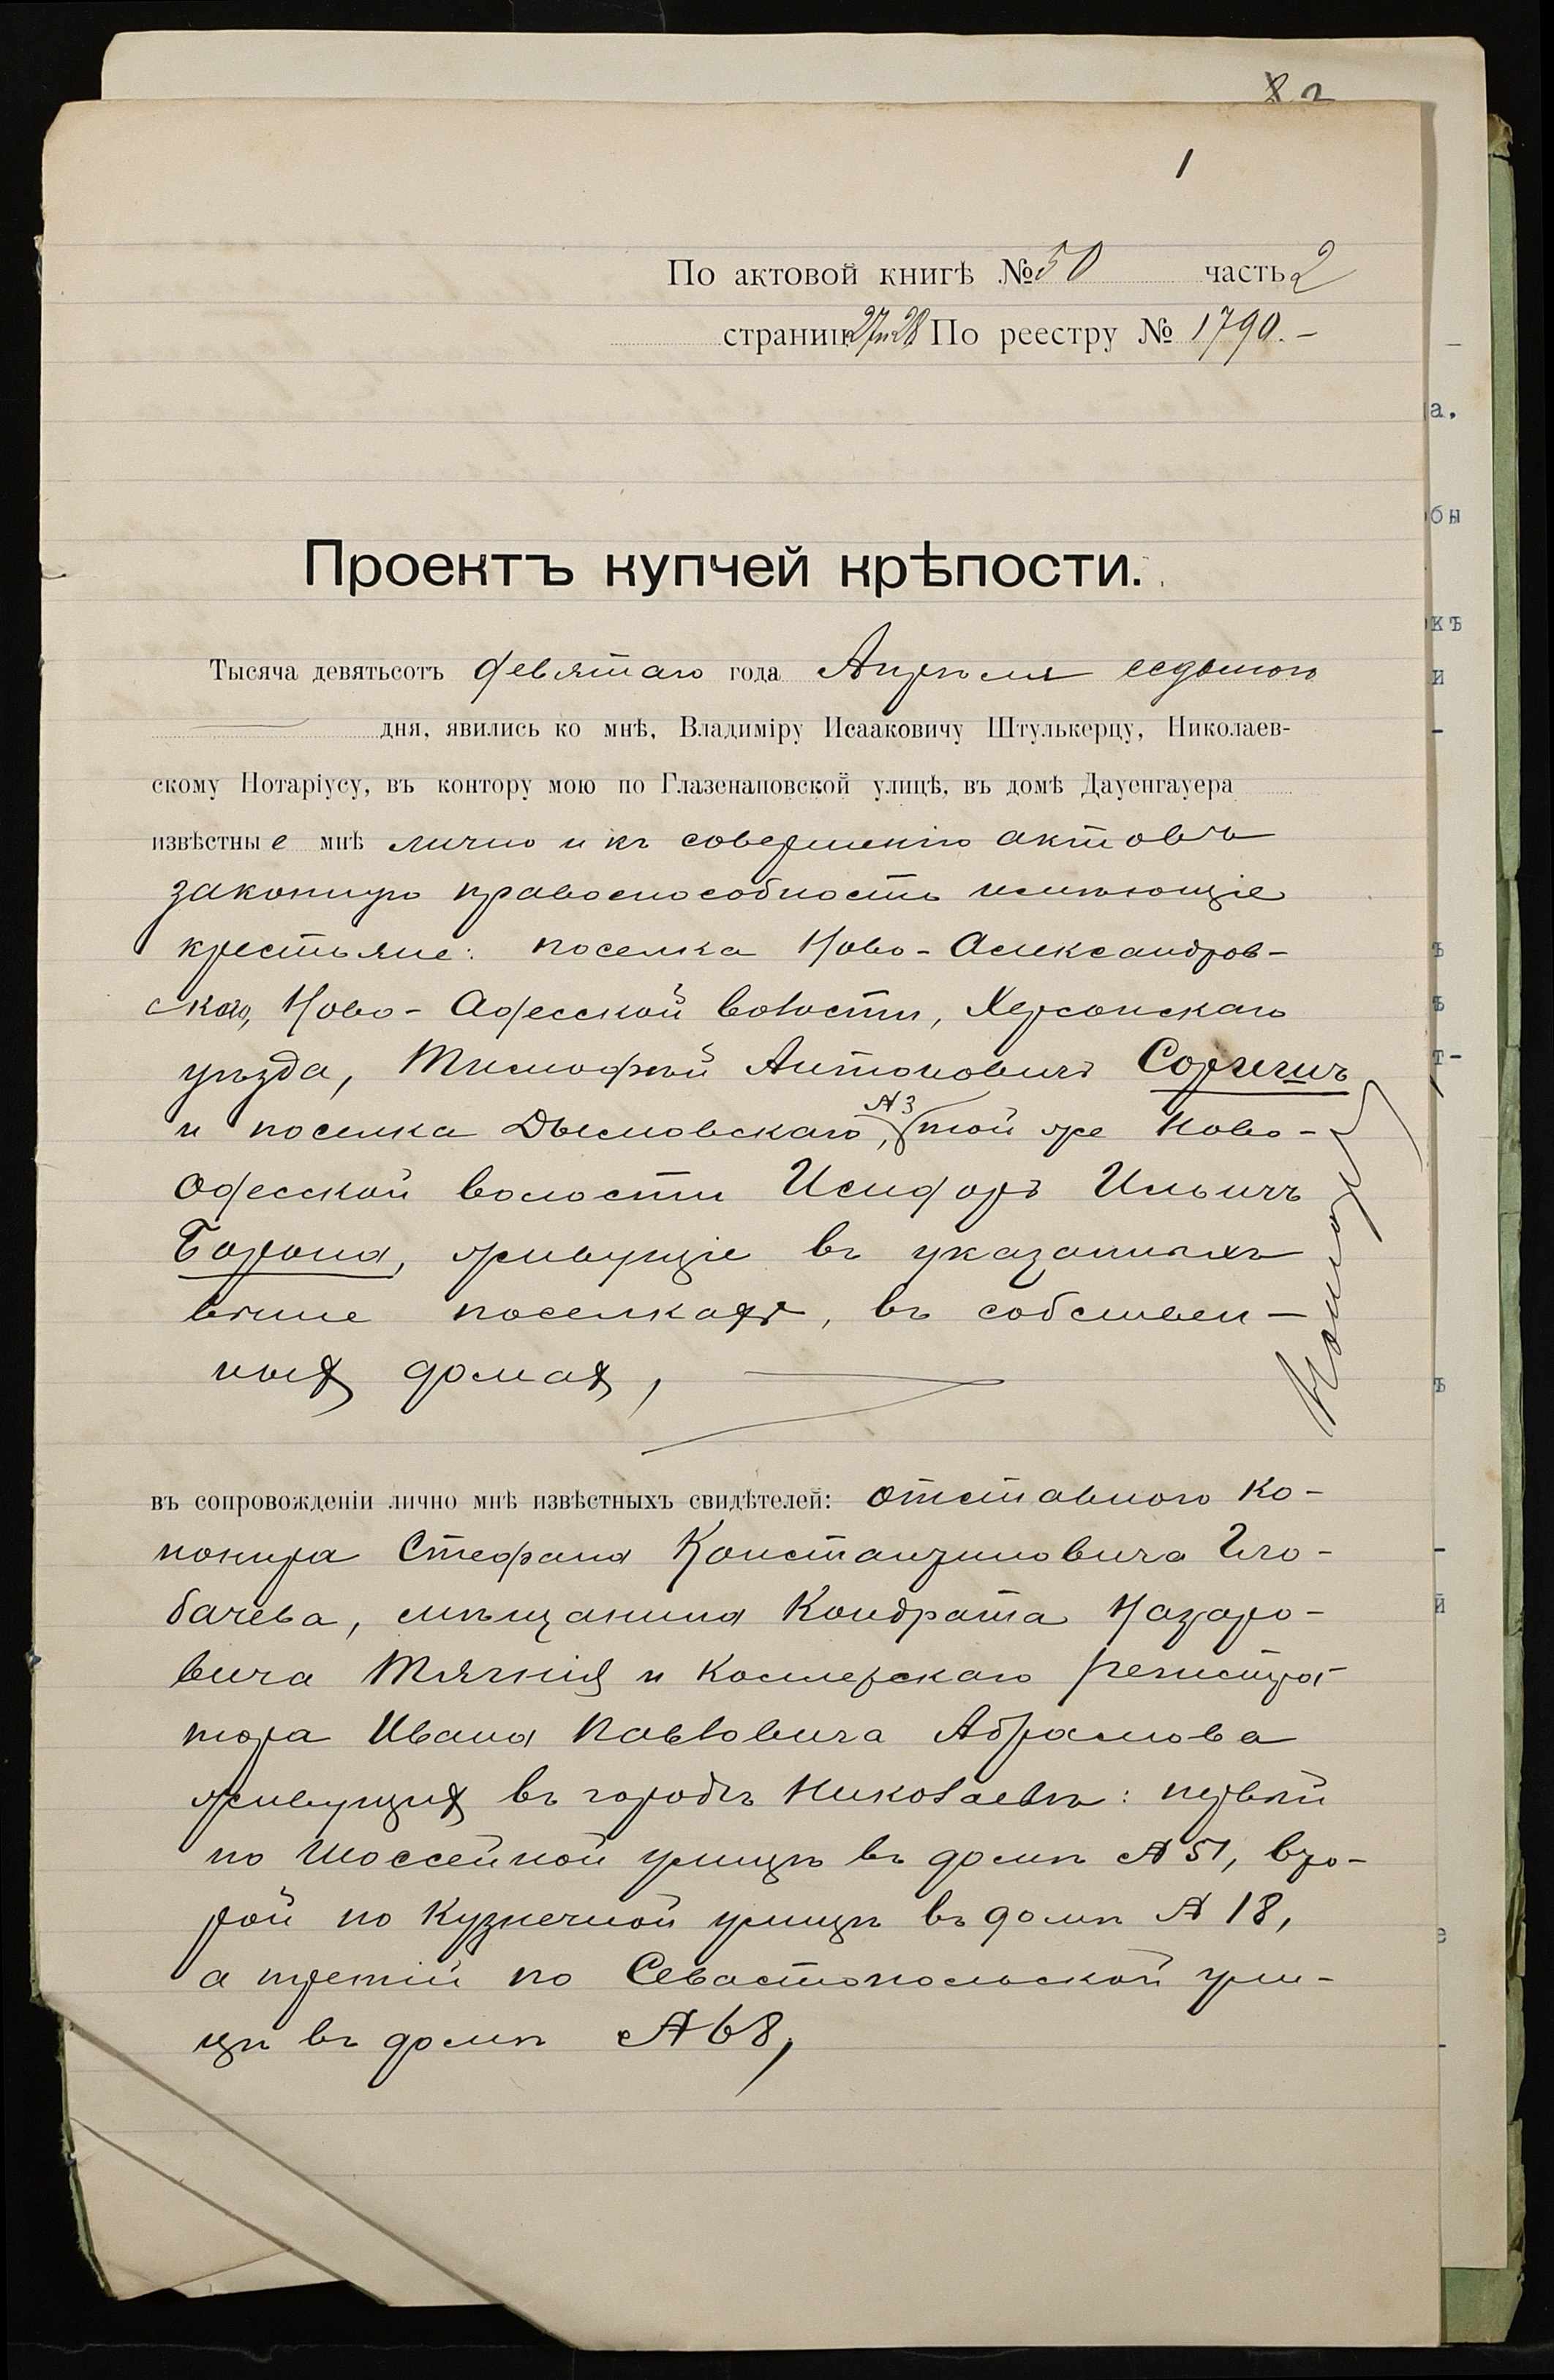 1
По актовой книгѣ № 50 часть 2
страниц 27 и 28 По реестру № 1790. –
Проектъ купчей крѣпости.
Тысяча девятьсотъ девятаго года Апрѣля седьмого
дня, явились ко мнѣ, Владиміру Исааковичу Штулькерцу, Николаев-
скому Нотаріусу, въ контору мою по Глазенаповской улицѣ, въ домѣ Дауенгауера
извѣстные мнѣ лично и къ совершенію актовъ
законную правоспособность имѣющіе
крестьяне: поселка Ново-Александров-
скаго, Ново-Одесской волости, Херсонскаго
уѣзда, Тимофѣй Антоновичъ
и поселка Дымовскаго, № 3 той же Ново-
Одесской волости Исидоръ Ильичъ
Борона, живущіе въ указанныхъ
выше поселкахъ, въ собствен-
ныхъ домахъ,
въ сопровожденіи лично мнѣ извѣстныхъ свидѣтелей: отставного ко-
нонира Стефана Константиновича
бачева, мѣщанина Кондрата Назаро-
вича и Коллежскаго регистра-
тора Ивана Павловича Абрамова
живущихъ въ городѣ Николаевѣ: первый
по Шоссейной улицѣ въ домѣ № 51, вто-
рой по Кузнечной улицѣ въ домѣ № 18,
а третій по Севастопольской ули-
цѣ въ домѣ № 68,